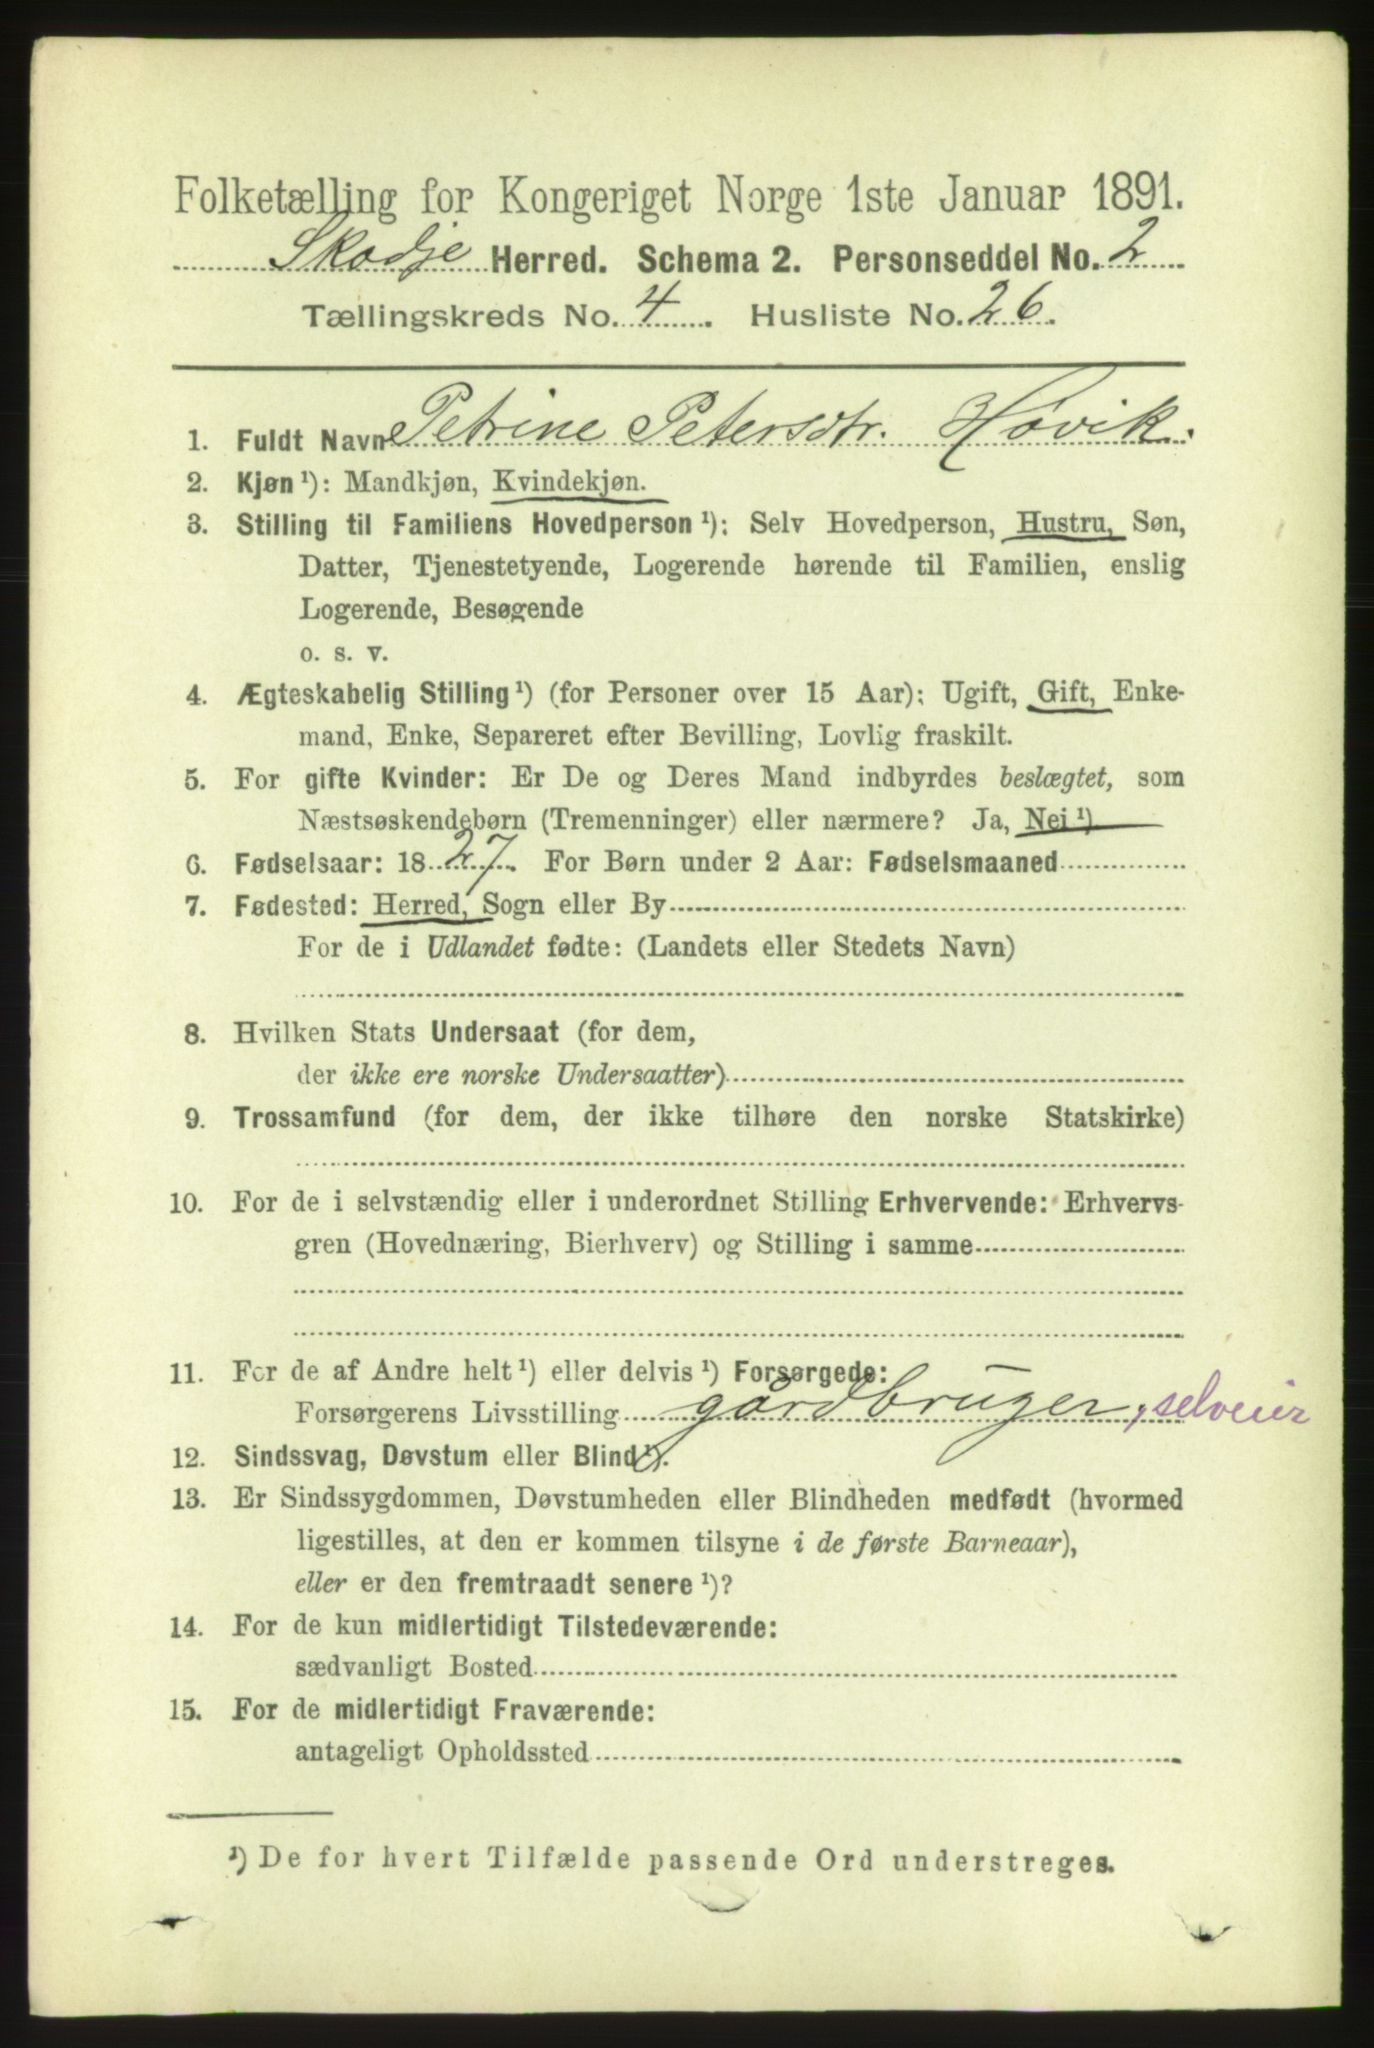 Folketælling for Kongeriget Norge 1ste Januar 1891.
Skodje Herred. Schema 2. Personseddel No. 2
Tællingskreds No. 4. Husliste No. 26.
1. Fuldt Navn Petrine Petersdtr. Hovik.
2. Kjøn ¹): Mandkjøn, Kvindekjøn.
3. Stilling til Familiens Hovedperson ¹): Selv Hovedperson, Hustru, Søn,
Datter, Tjenestetyende, Logerende hørende til Familien, enslig
Logerende, Besøgende
o. s. v.
4. Ægteskabelig Stilling ¹) (for Personer over 15 Aar): Ugift, Gift, Enke-
mand, Enke, Separeret efter Bevilling, Lovlig fraskilt.
5. For gifte Kvinder: Er De og Deres Mand indbyrdes beslægtet, som
Næstsøskendebørn (Tremenninger) eller nærmere? Ja, Nei ¹)
6. Fødselsaar: 1827. For Børn under 2 Aar: Fødselsmaaned
7. Fødested: Herred, Sogn eller By
For de i Udlandet fødte: (Landets eller Stedets Navn)
8. Hvilken Stats Undersaat (for dem,
der ikke ere norske Undersaatter)
9. Trossamfund (for dem, der ikke tilhøre den norske Statskirke)
10. For de i selvstændig eller i underordnet Stilling Erhvervende: Erhvervs-
gren (Hovednæring, Bierhverv) og Stilling i samme
11. For de af Andre helt ¹) eller delvis ¹) Forsørgede:
Forsørgerens Livsstilling gårdbruger, selveier
12. Sindssvag, Døvstum eller Blind ¹).
13. Er Sindssygdommen, Døvstumheden eller Blindheden medfødt (hvormed
ligestilles, at den er kommen tilsyne i de første Barneaar),
eller er den fremtraadt senere ¹)?
14. For de kun midlertidigt Tilstedeværende:
sædvanligt Bosted
15. For de midlertidigt Fraværende:
antageligt Opholdssted
¹) De for hvert Tilfælde passende Ord understreges.